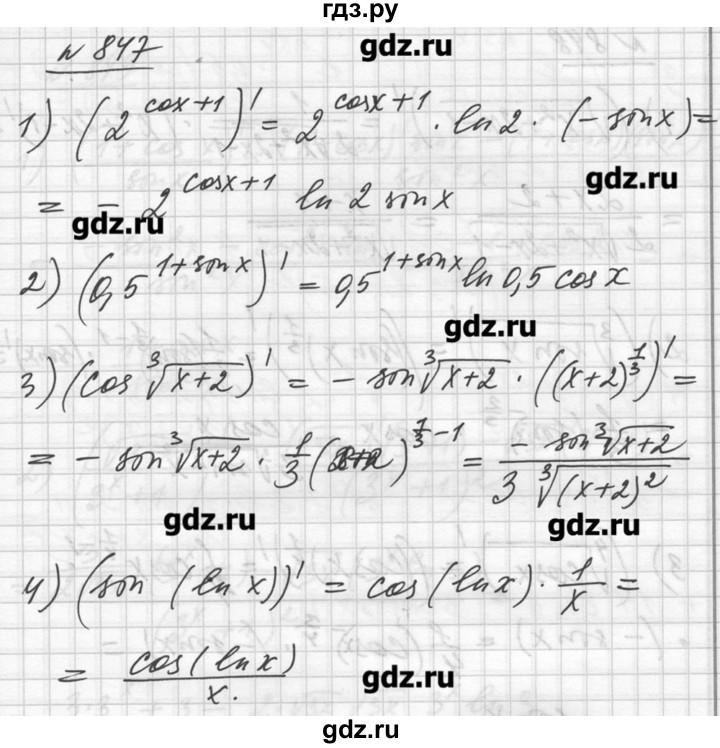 гдз.ру
gdz.ru
№ 847
1) (2^{cosx+1})' = 2^{cosx+1} · ln2 · (-sinx) =
gdz.ru
= - 2^{cosx+1} ln 2 sinx
gdz.ru
2) (0,5^{1+sinx})' = 0,5^{1+sinx} ln0,5 cosx
gdz.ru
3) (cos ∛(x+2))' = - sin ∛(x+2) · ((x+2)^{1/3})' =
= - sin ∛(x+2) · 1/3 (x+2)^{1/3 - 1} = - sin ∛(x+2) / 3 ∛((x+2)^2)
gdz.ru
gdz.ru
4) (sin (ln x))' = cos(lnx) · 1/x =
= cos(lnx) / x.
gdz.ru
gdz.ru